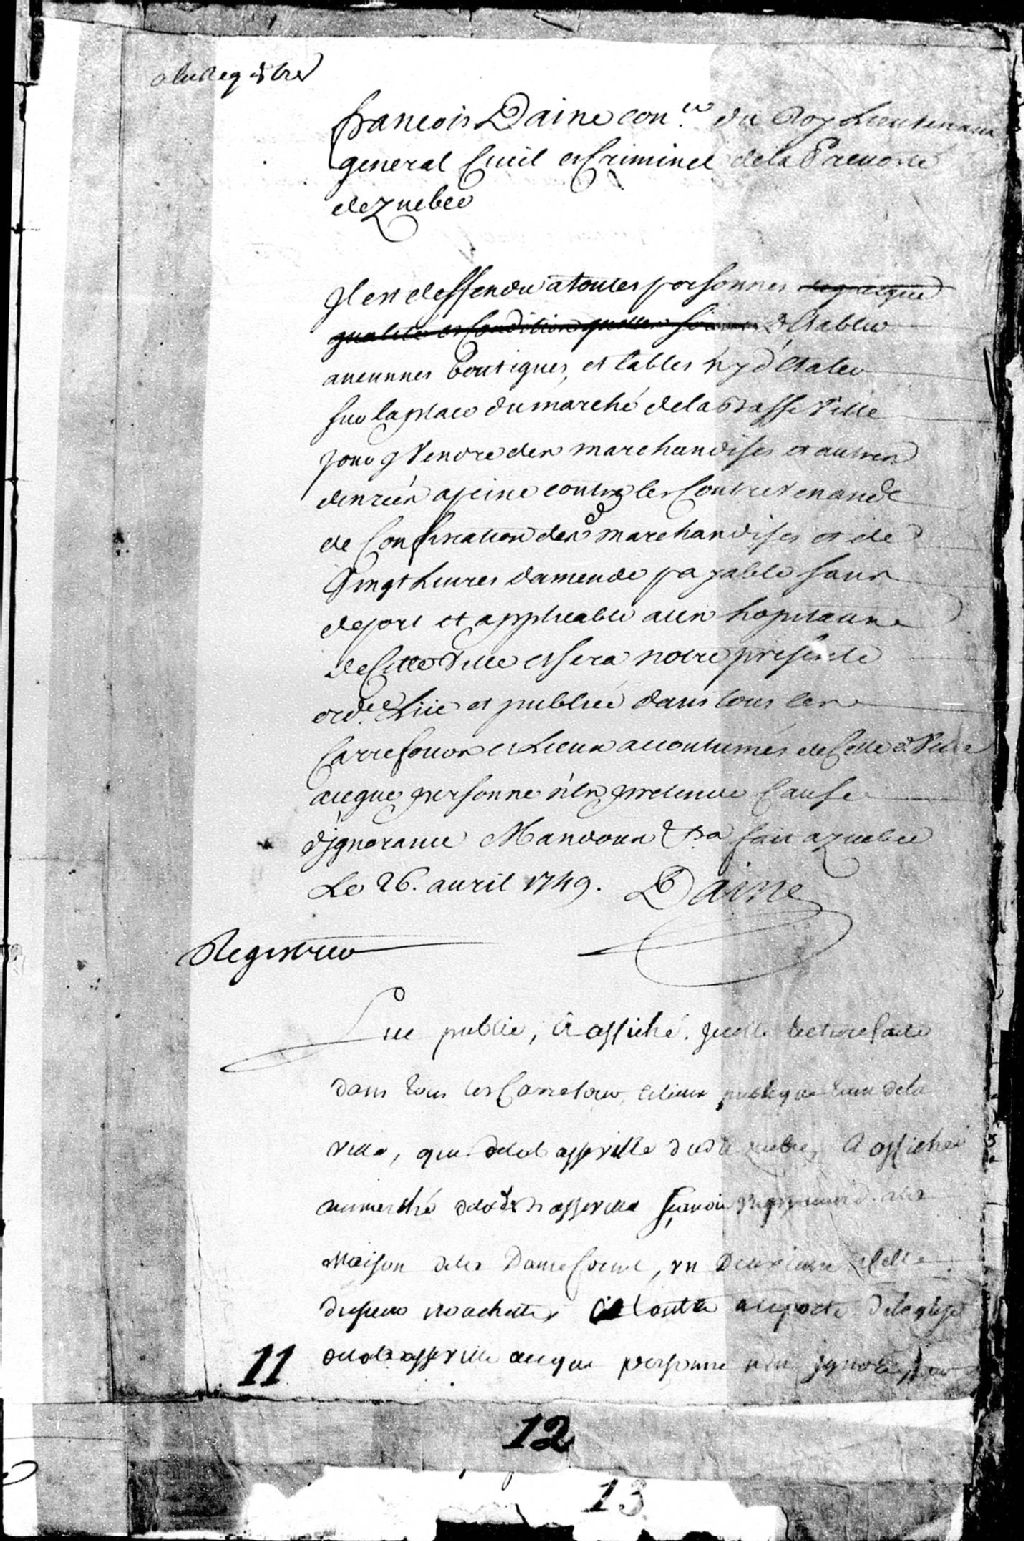 a lenregistrer
francois Daine con.er du Roy Lieutenant
general Civil et Criminel de la Prevosté
de quebec
Il est deffendu a toutes personnes de quelque
qualité et Condition quelles soient d'Etablir
aucunnes boutiques, et tables ny d'Etaler
sur la place du marché de la basse Ville
pour y Vendre des marchandises et autres
denrées a peine contre les Contrevenands
de Confiscation desd marchandises et de
Vingt Livres damende payable sans
deport et applicable aux hopitaux
de Cette Ville et sera notre presente
ord.ce Lüe et publiée dans tous les
Carrefours et Lieux accoutumés de Cette d. Ville
aceque personne n'En pretende Cause
d'Ignorance Mandons &.a fait a quebec
Le 26. avril 1749. Daine
Registrer
Lue publie, et affiché. lecture faite
dans tous les Carrefour, et lieux publique de la
ville, que de la basse ville afficher
au marché de la d basse ville
Maison de la Dame
a la porte de leglise
de la basse ville aceque personne nen ignore
11
12
13